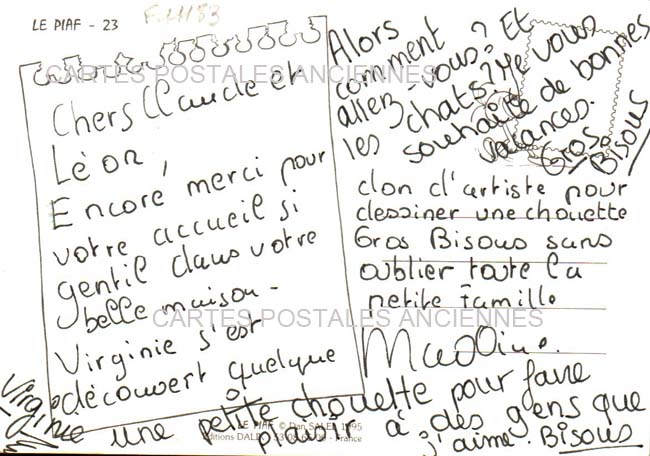 LE PIAF - 23
F.11183
CARTES POSTALES ANCIENNES
Chers Claude et
Léon,
Encore merci pour
votre accueil si
gentil dans votre
belle maison -
Virginie s'est
découvert quelque
don d'artiste pour
dessiner une chouette
Gros Bisous sans
oublier toute la
petite famille
Alors
comment
allez-vous? Et
les chats? Je vous
souhaite de bonnes
vacances.
Gros
Bisous
CARTES POSTALES ANCIENNES
Virginie
une petite chouette pour faire
plaisir à des gens que
j'aime. Bisous
LE PIAF © Dan SALEL 1995
- France